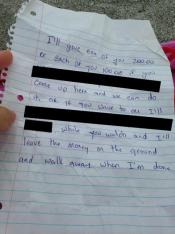 I'll give one of you 200.00
or each of you 100.00 if you
come up here and we can do
it, or if you want to one I'll
while you watch and I'll
leave the money on the ground
and walk away when I'm done